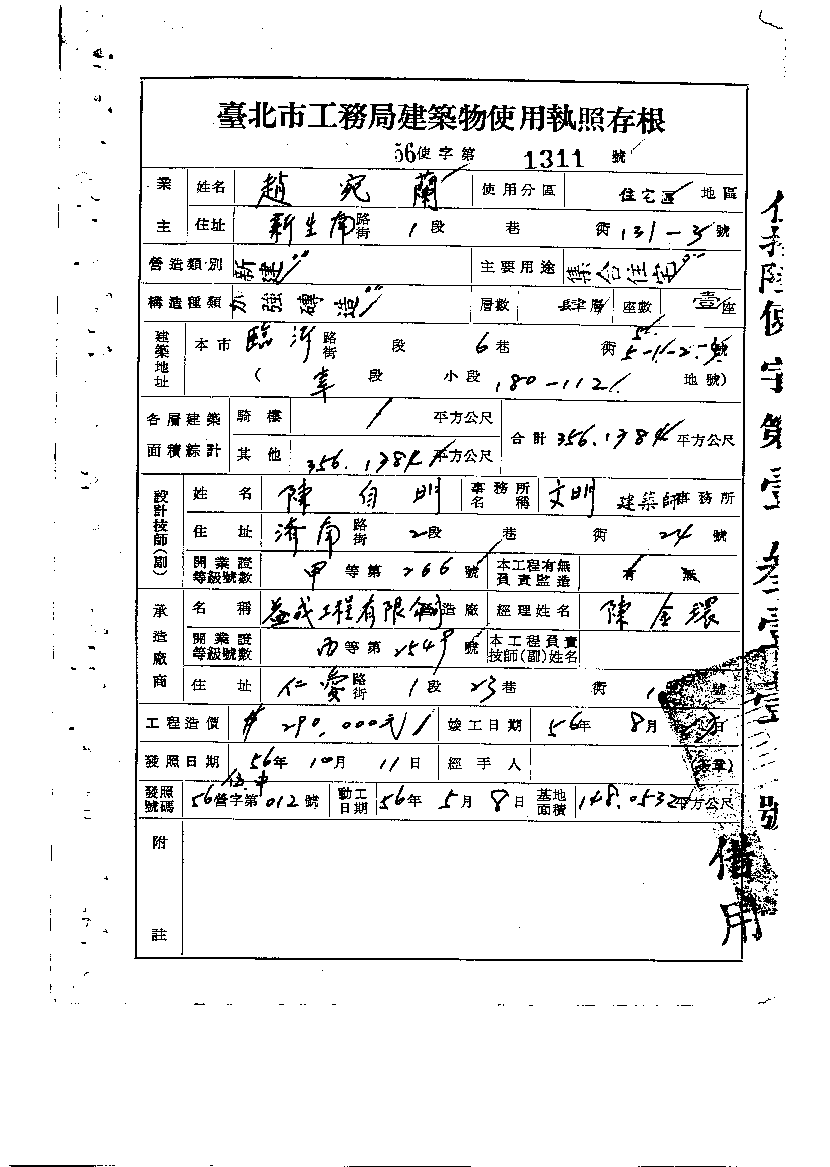 臺北市工務局建築物使用執照存根
56使字第 1311 號
業主 姓名 趙宛蘭 使用分區 住宅區 地區
住址 新生南路街 1段 巷 街 131-3號
營造類別 新建 主要用途 集合住宅
構造種類 加強磚造 層數 層 座數 壹座
建築地址 本市 臨沂路街 段 6巷 街 號
( 段 小段 180-112 地號)
各層建築面積綜計 騎樓 平方公尺 合計 356.1384 平方公尺
其他 356.1384 平方公尺
設計技師(副) 姓名 陳自明 事務所名稱 文明建築師事務所
住址 濟南路街 2段 巷 街 24號
開業證等級號數 甲等第266號 本工程有無負責監造 有 無
承造廠商 名稱 益成工程有限公司 營造廠 經理姓名 陳金環
開業證等級號數 丙等第2549號 本工程負責技師(副)姓名
住址 仁愛路街 1段 23巷 街 號
工程造價 #290,000元 竣工日期 56年 8月 日
發照日期 56年 10月 11日 經手人 (蓋章)
發照號碼 56營字第012號 動工日期 56年 5月 8日 基地面積 148.0532平方公尺
附註
使字第壹叁壹壹號
借用